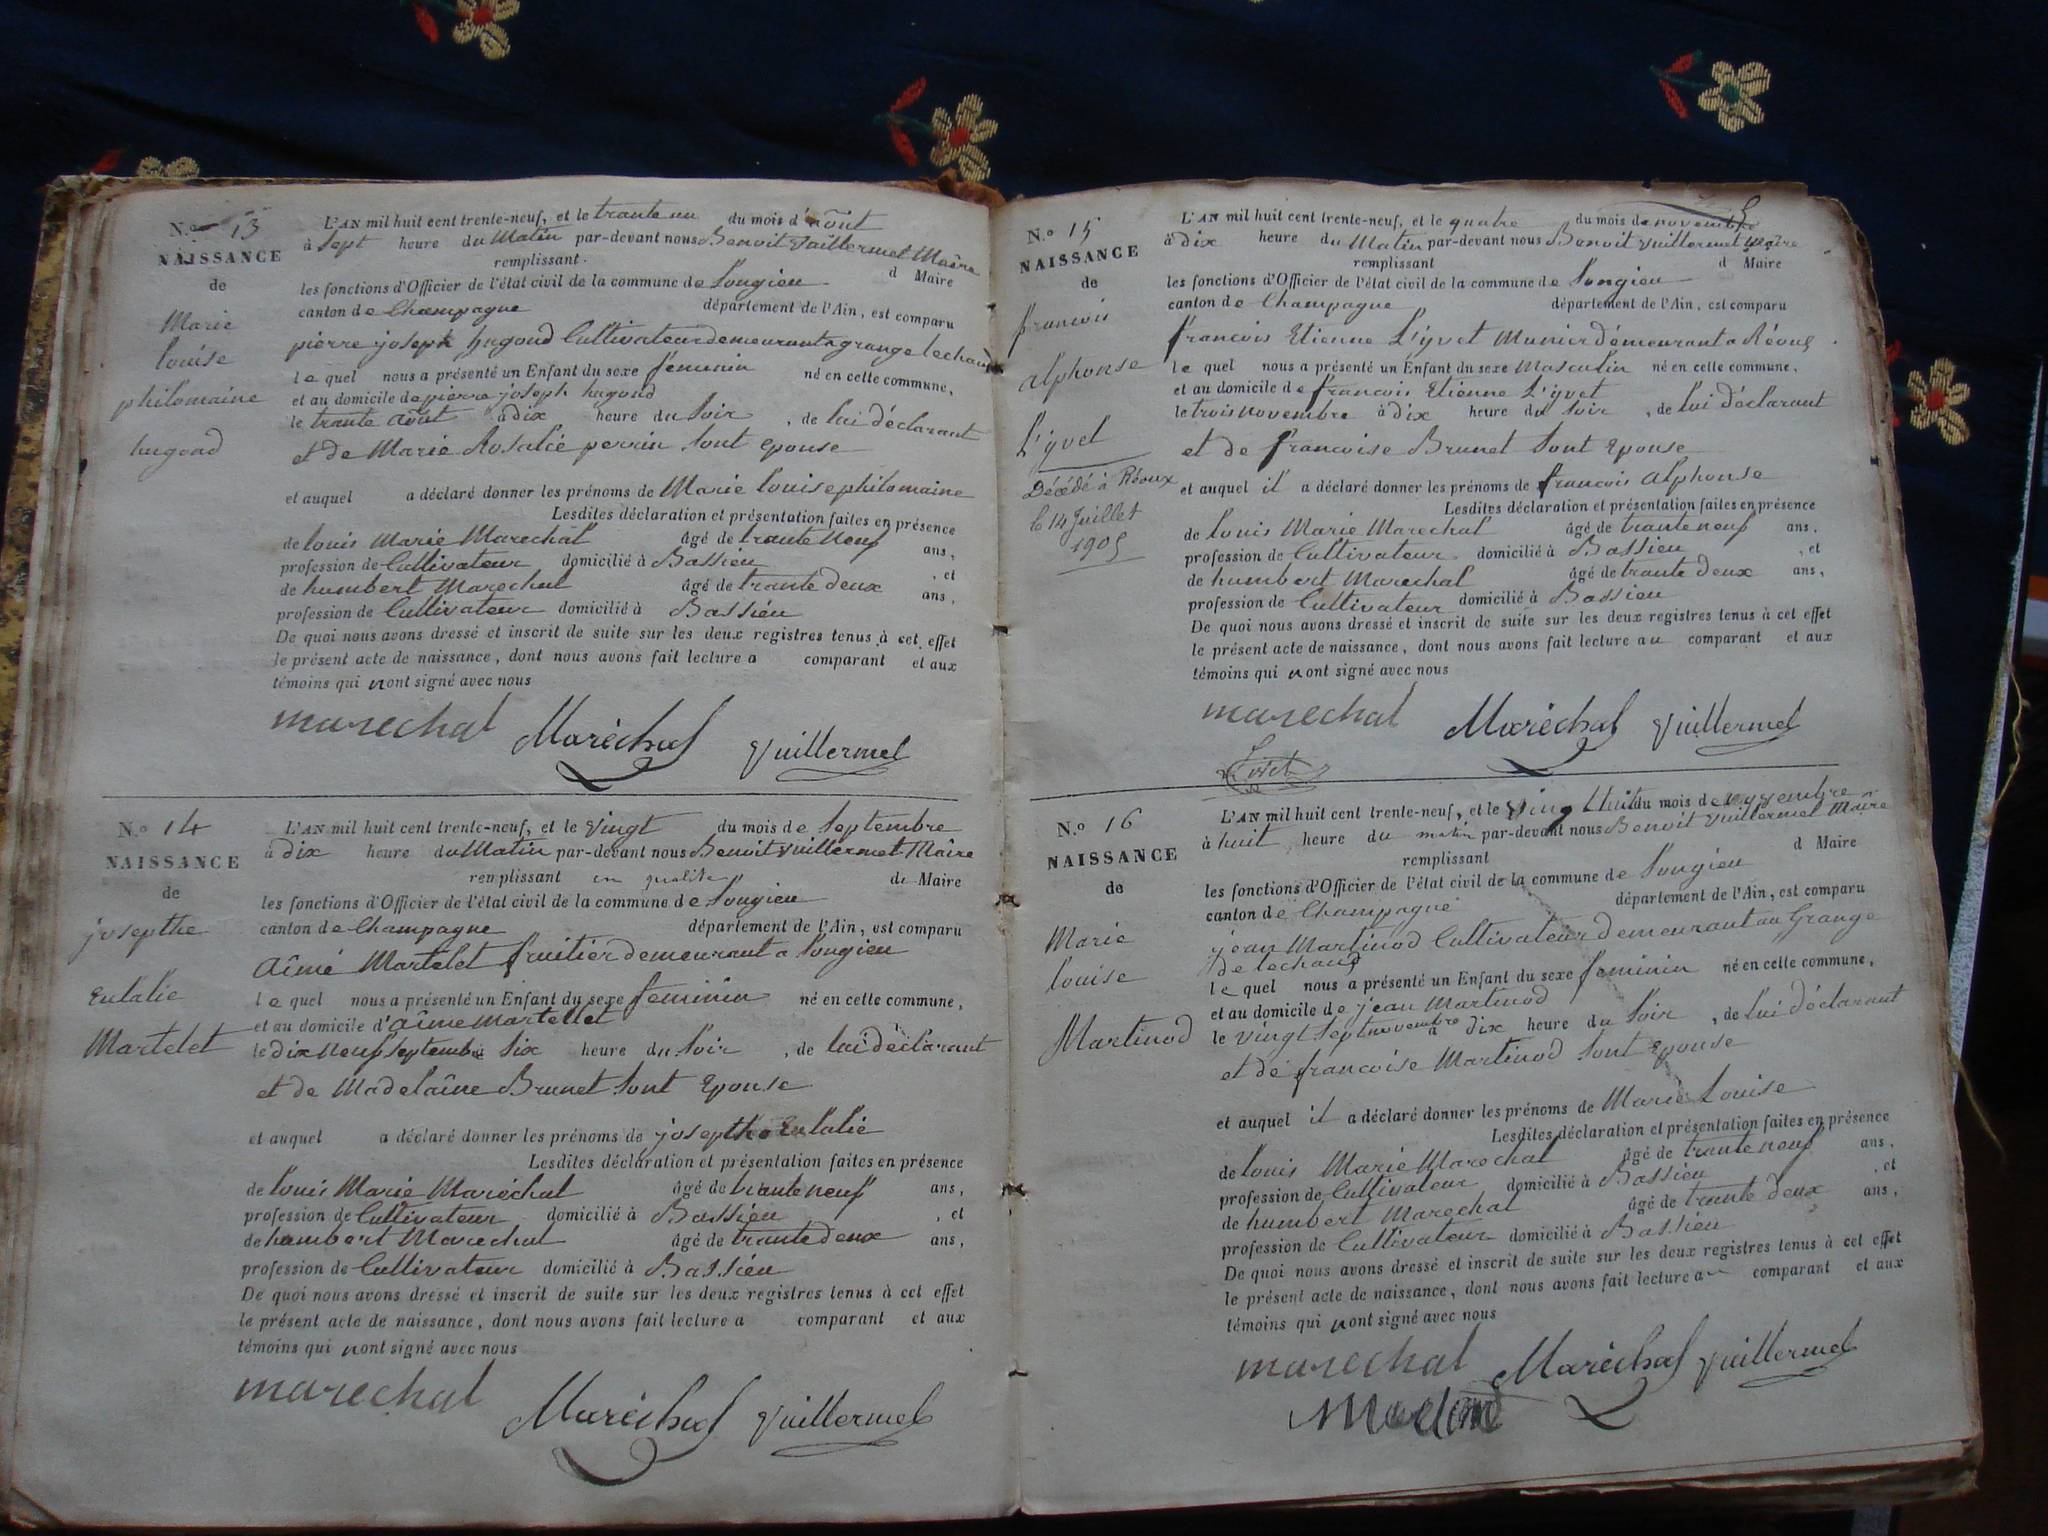 N.o 13
NAISSANCE
de
Marie
louise
philomaine
hugond
L'AN mil huit cent trente-neuf, et le trante un du mois d'Août
à sept heure du Matin par-devant nous Benoit Vuillermet Maire
remplissant d Maire
les fonctions d'Officier de l'état civil de la commune de Songieu
canton de Champagne département de l'Ain, est comparu
pierre joseph hugond Cultivateur demeurant a grange lechaud
le quel nous a présenté un Enfant du sexe feminin né en cette commune,
et au domicile de pierre joseph hugond
le trante Août à dix heure du soir, de lui déclarant
et de Marie Rosalie perrin sont epouse
et auquel a déclaré donner les prénoms de Marie louise philomaine
Lesdites déclaration et présentation faites en présence
de louis Marie Marechal âgé de trante neuf ans,
profession de Cultivateur domicilié à Bassieu , et
de humbert Marechal âgé de trante deux ans,
profession de Cultivateur domicilié à Bassieu
De quoi nous avons dressé et inscrit de suite sur les deux registres tenus à cet effet
le présent acte de naissance, dont nous avons fait lecture a comparant et aux
témoins qui nont signé avec nous
marechal Maréchal Vuillermet
N.o 14
NAISSANCE
de
josepthe
Eulalie
Martelet
L'AN mil huit cent trente-neuf, et le Vingt du mois de Septembre
à dix heure du Matin par-devant nous Benoit Vuillermet Maire
remplissant en qualité de Maire
les fonctions d'Officier de l'état civil de la commune de Songieu
canton de Champagne département de l'Ain, est comparu
Aîmé Martelet fruitier demeurant a Songieu
le quel nous a présenté un Enfant du sexe feminin né en cette commune,
et au domicile d'Aîmé Martellet
le dix neuf septembre six heure du soir , de lui déclarant
et de Madelaîne Brunet sont Epouse
et auquel a déclaré donner les prénoms de josepthe Eulalie
Lesdites déclaration et présentation faites en présence
de louis Marie Maréchal âgé de trante neuf ans,
profession de Cultivateur domicilié à Bassieu , et
de humbert Marechal âgé de trante deux ans,
profession de Cultivateur domicilié à Bassieu
De quoi nous avons dressé et inscrit de suite sur les deux registres tenus à cet effet
le présent acte de naissance, dont nous avons fait lecture a comparant et aux
témoins qui nont signé avec nous
marechal Maréchal Vuillermet
N.o 15
NAISSANCE
de
francois
alphonse
L'yvet
Décédé à Réoux
le 14 Juillet
1905
L'AN mil huit cent trente-neuf, et le quatre du mois de novembre
à dix heure du Matin par-devant nous Benoit Vuillermet Maire
remplissant d Maire
les fonctions d'Officier de l'état civil de la commune de Songieu
canton de Champagne département de l'Ain, est comparu
francois Etienne L'yvet Munier demeurant a Réoux
le quel nous a présenté un Enfant du sexe Masculin né en cette commune,
et au domicile de francois Etienne L'yvet
le trois novembre à dix heure du soir , de lui déclarant
et de francoise Brunet sont Epouse
et auquel il a déclaré donner les prénoms de francois alphonse
Lesdites déclaration et présentation faites en présence
de louis Marie Marechal âgé de trante neuf ans,
profession de Cultivateur domicilié à Bassieu , et
de humbert Marechal âgé de trante deux ans,
profession de Cultivateur domicilié à Bassieu
De quoi nous avons dressé et inscrit de suite sur les deux registres tenus à cet effet
le présent acte de naissance, dont nous avons fait lecture au comparant et aux
témoins qui nont signé avec nous
marechal Maréchal Vuillermet
N.o 16
NAISSANCE
de
Marie
louise
Martinod
L'AN mil huit cent trente-neuf, et le Ving thuit du mois de novembre
à huit heure du matin par-devant nous Benoit Vuillermet Maire
remplissant d Maire
les fonctions d'Officier de l'état civil de la commune de Songieu
canton de Champagne département de l'Ain, est comparu
jean Martinod Cultivateur demeurant au Grange
de lechaud
le quel nous a présenté un Enfant du sexe feminin né en cette commune,
et au domicile de jean Martinod
le vingt sept novembre à dix heure du soir , de lui déclarant
et de francoise Martinod sont Epouse
et auquel il a déclaré donner les prénoms de Marie Louise
Lesdites déclaration et présentation faites en présence
de louis Marie Marechal âgé de trante neuf ans,
profession de Cultivateur domicilié à Bassieu , et
de humbert Marechal âgé de trante deux ans,
profession de Cultivateur domicilié à Bassieu
De quoi nous avons dressé et inscrit de suite sur les deux registres tenus à cet effet
le présent acte de naissance, dont nous avons fait lecture au comparant et aux
témoins qui nont signé avec nous
marechal Maréchal Vuillermet